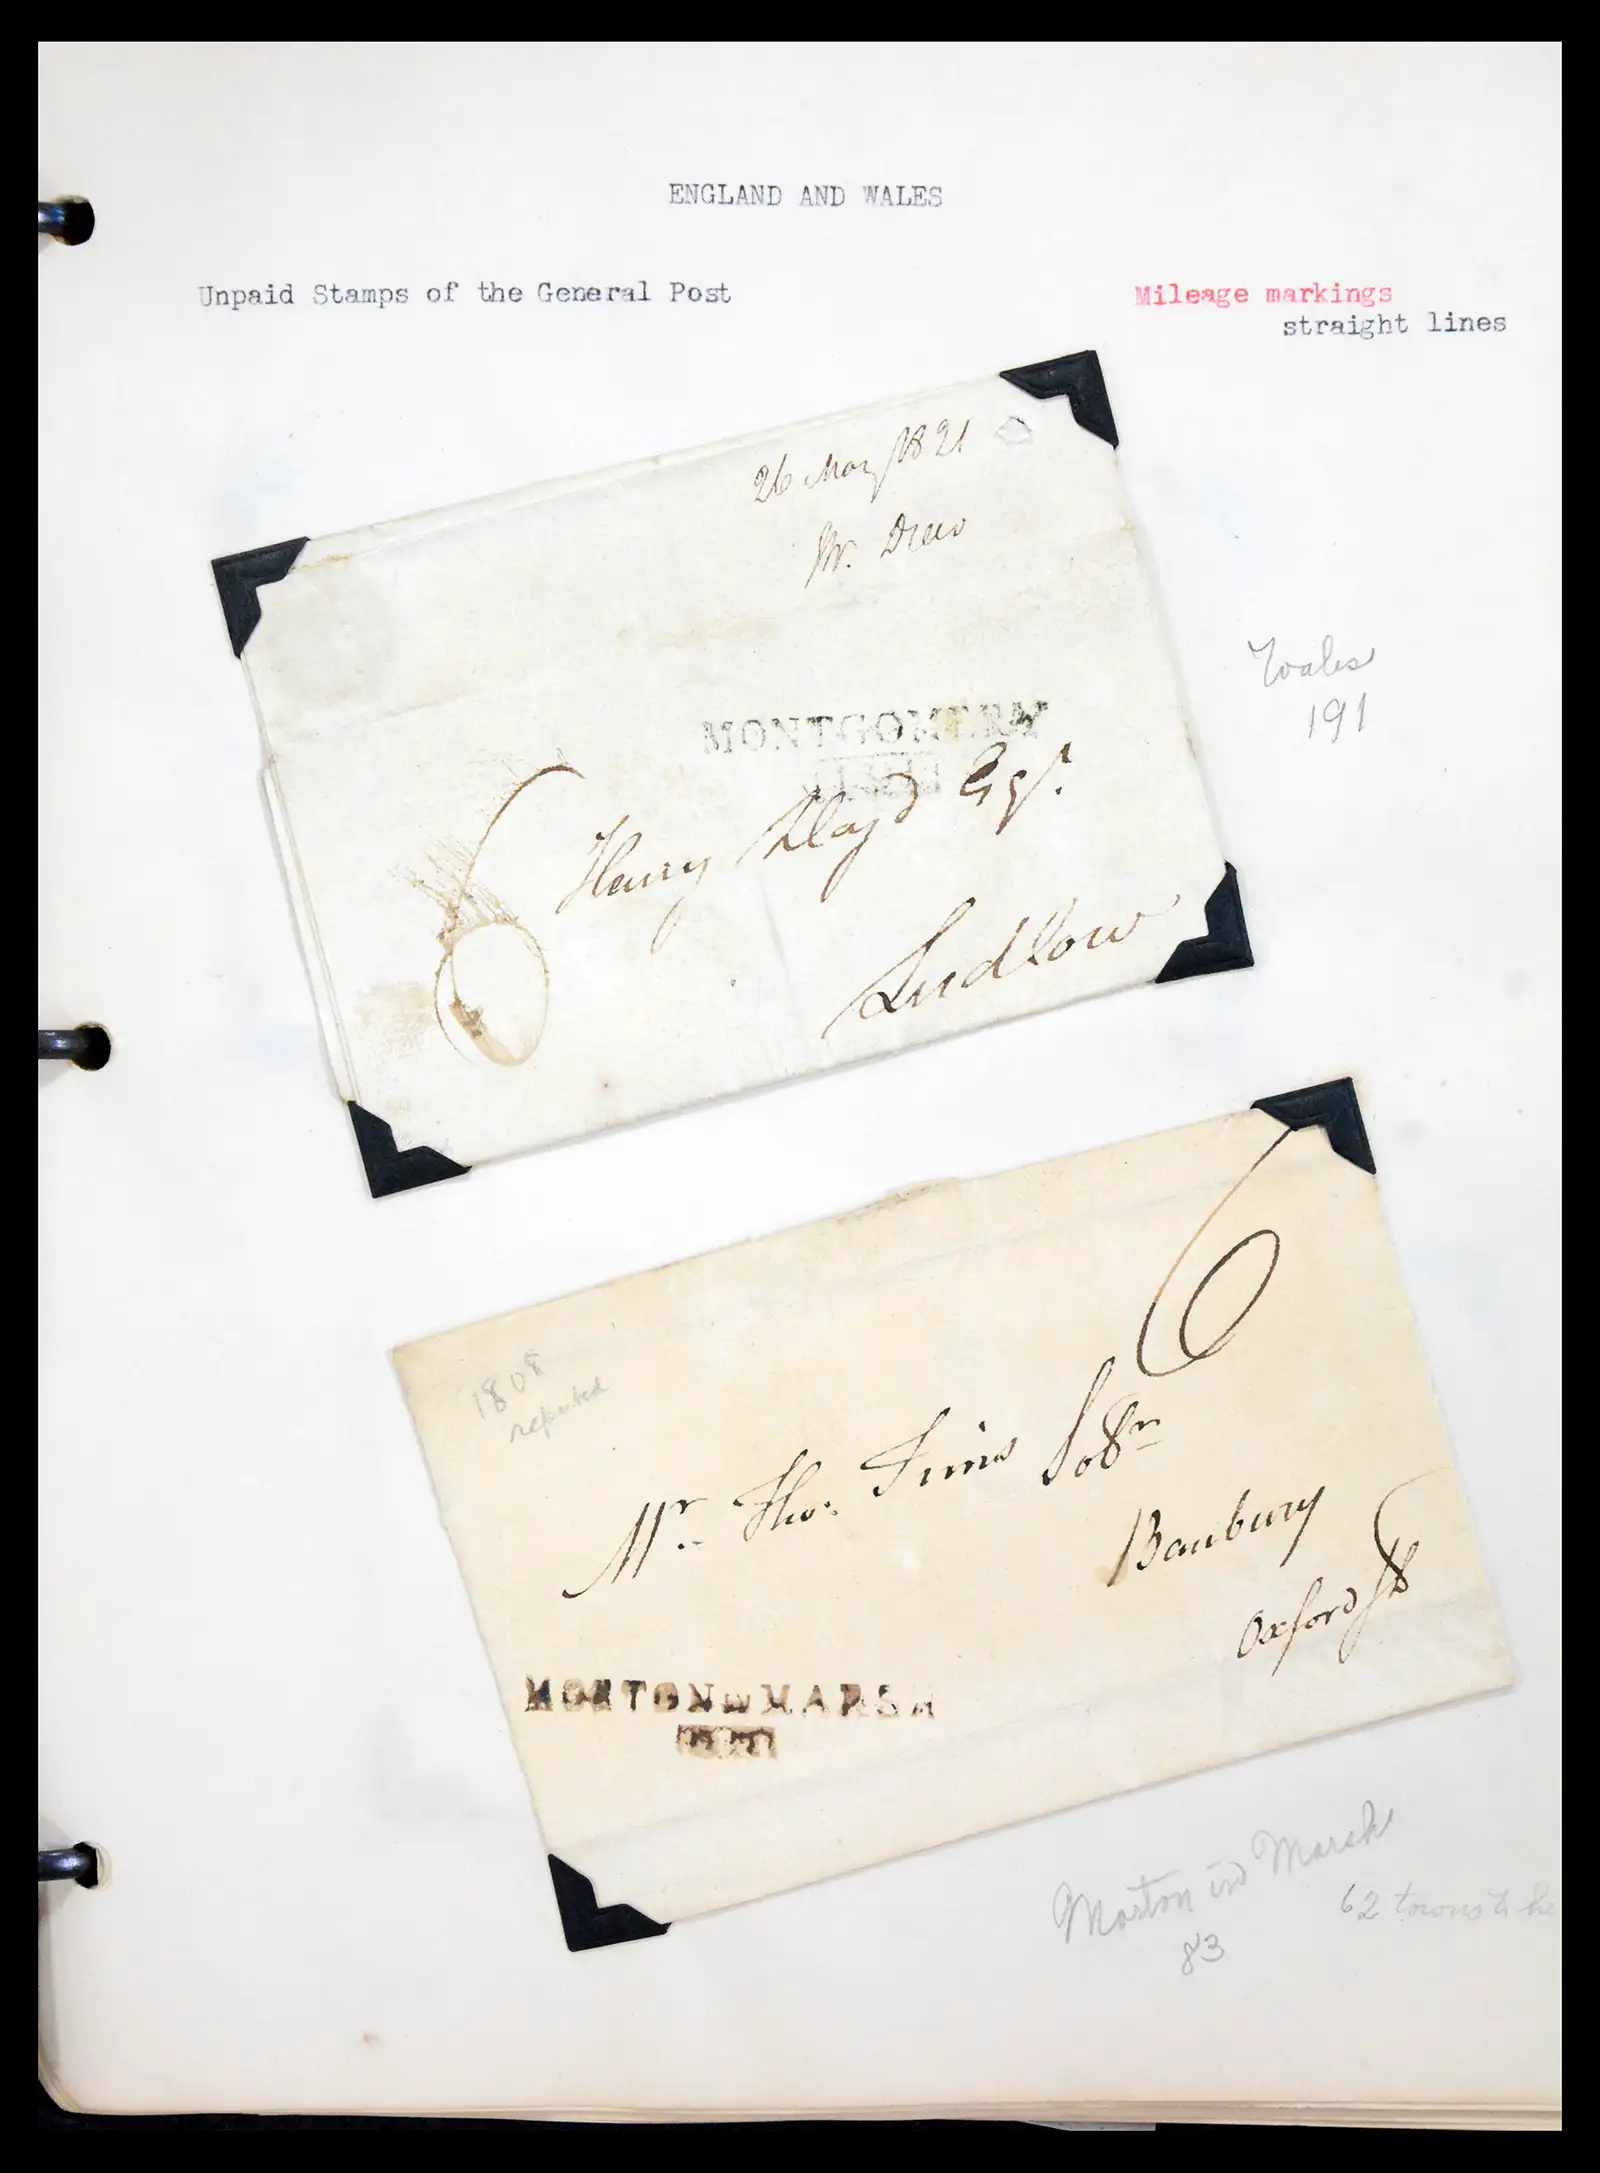 ENGLAND AND WALES
Unpaid Stamps of the General Post
Mileage markings
straight lines
26 May 1821
Mr. Drew
MONTGOMERY
Wales
191
6
Henry Lloyd Esqr.
Ludlow
6
1808
Mr. Thos. Tims Solr
Banbury
Oxford
MORTON IN MARSH
Morton in Marsh
83
62 towns